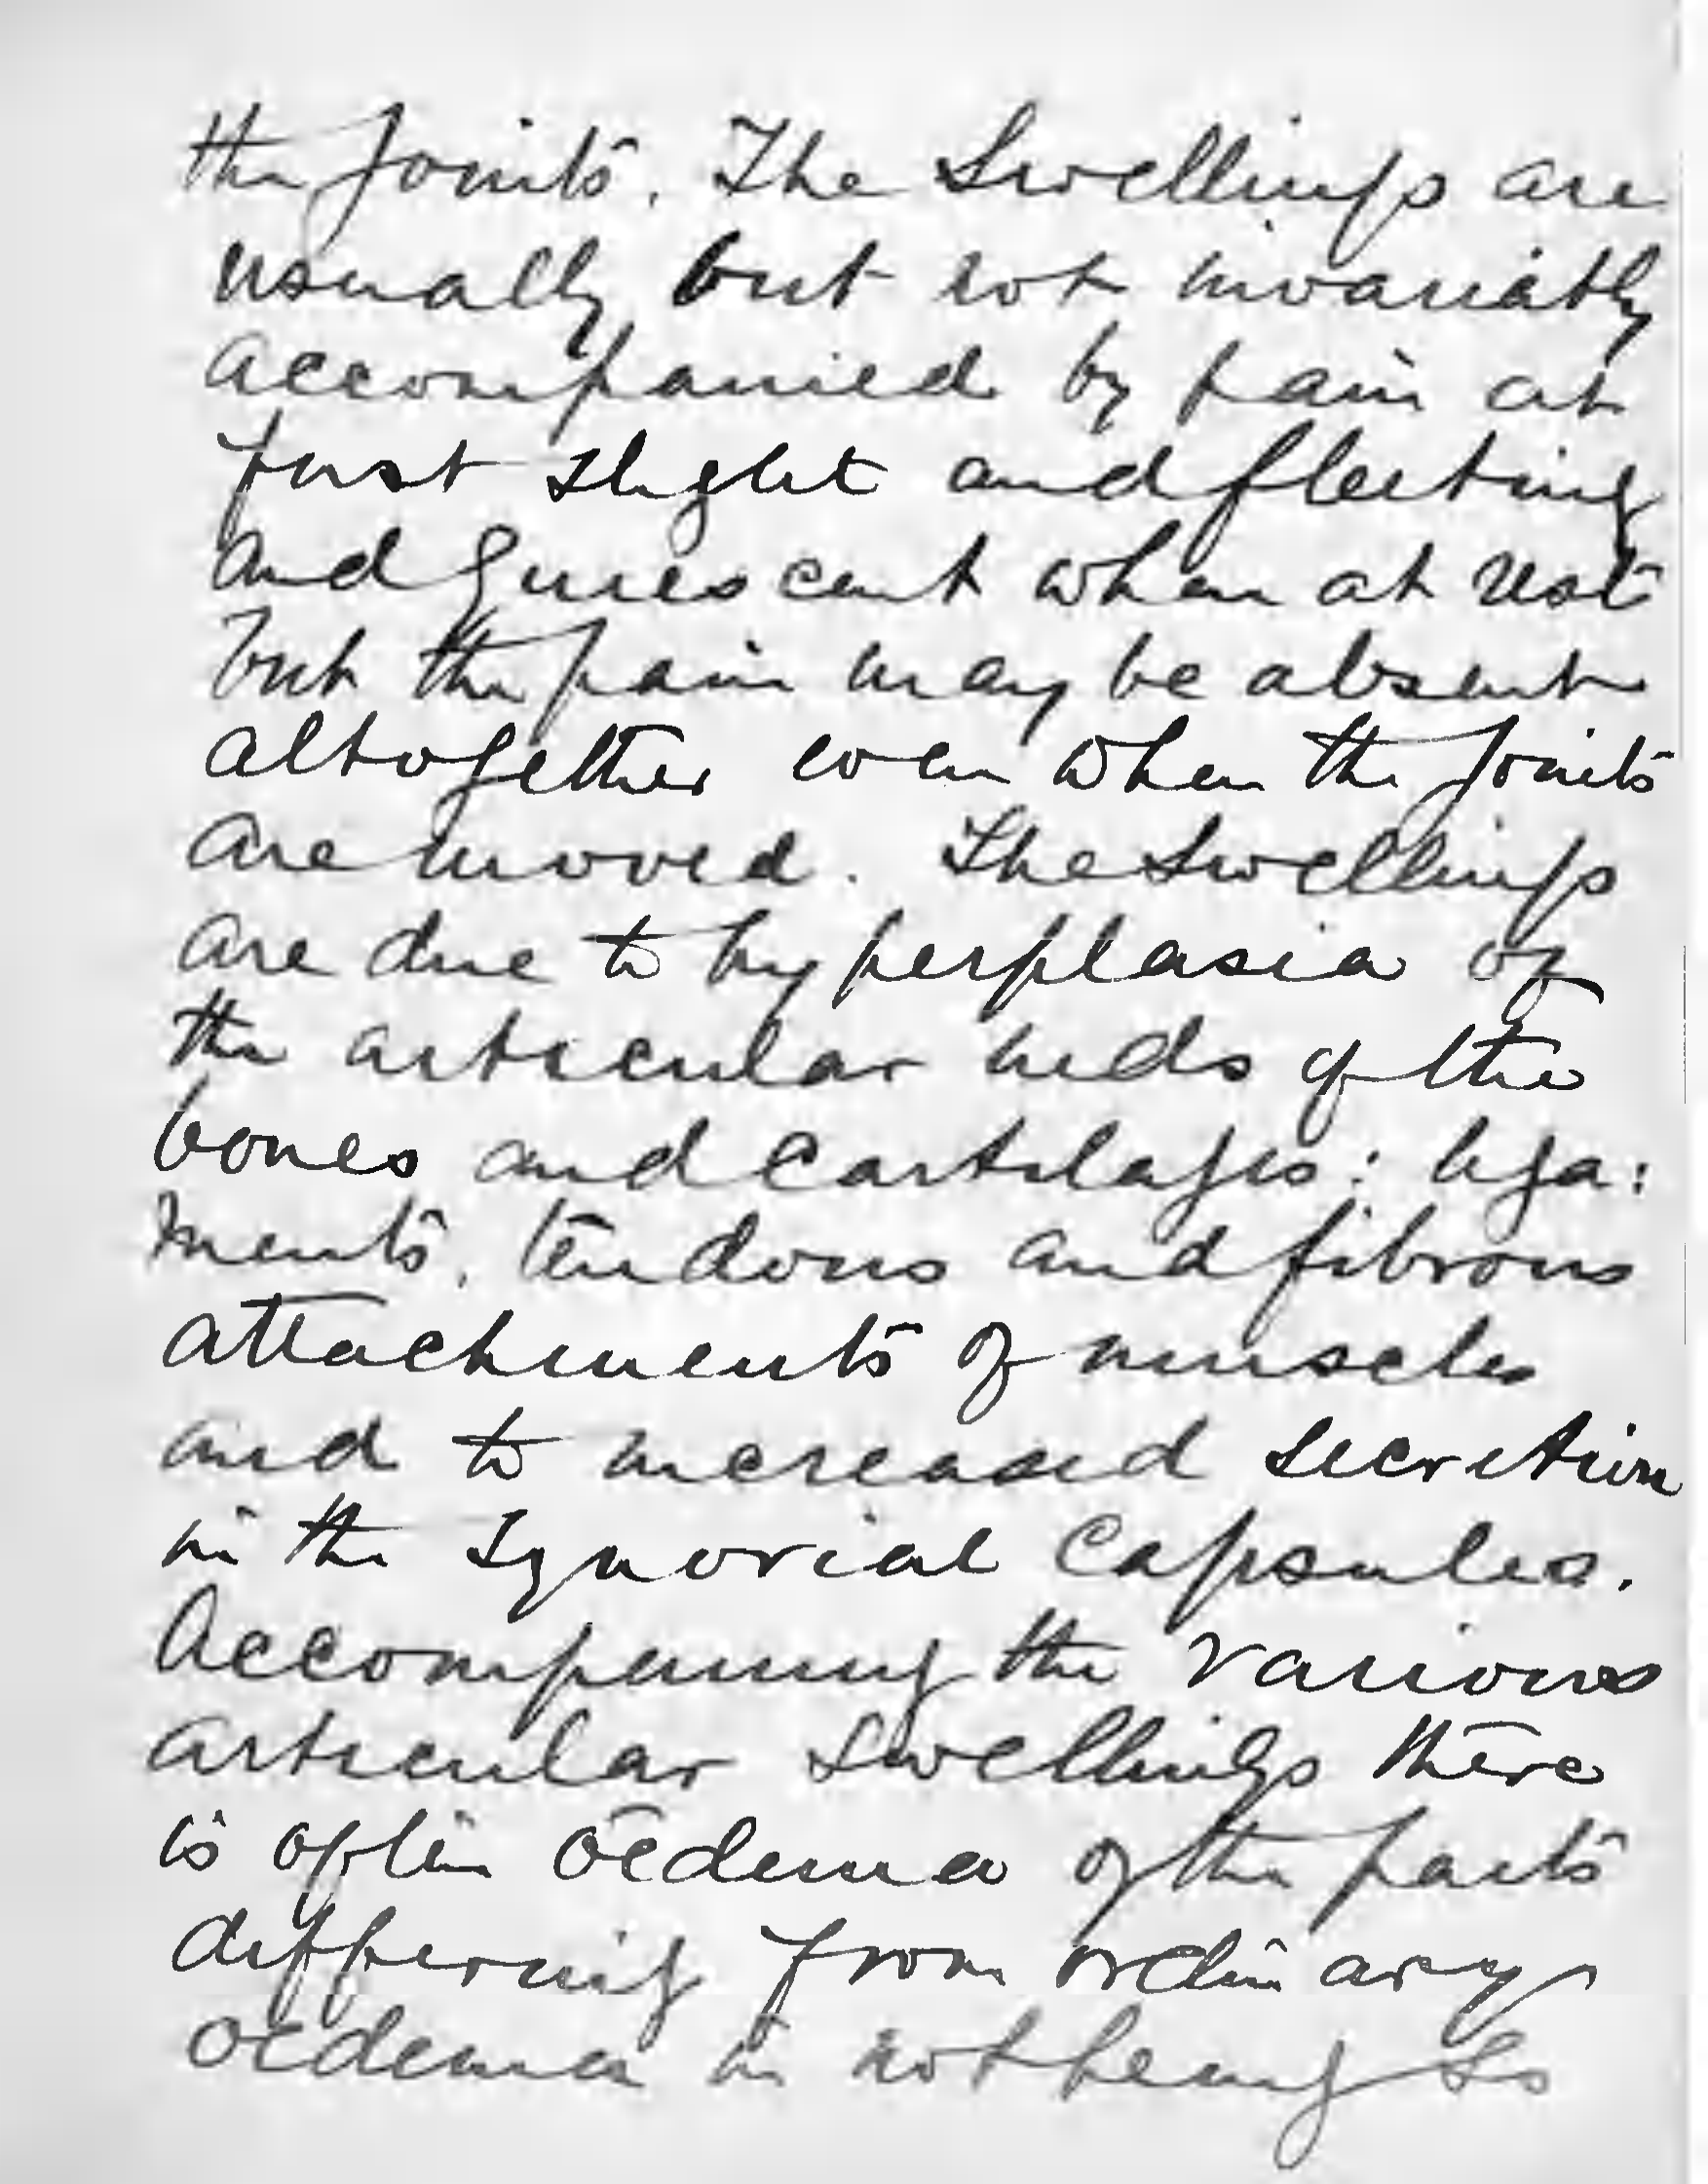 the joints. The Swellings are
usually but not invariably
accompanied by pain at
first slight and fleeting
and quiescent when at rest
but the pain may be absent
altogether even when the joints
are moved. The Swellings
are due to hyperplasia of
the articular ends of the
bones and cartilages: liga:
ments, tendons and fibrous
attachments of muscles
and to increased secretion
in the synovial capsules.
Accompaning the various
articular swellings there
is often oedema of the parts
differing from ordinary
oedema in not being so